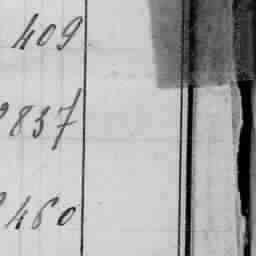 409
837
460